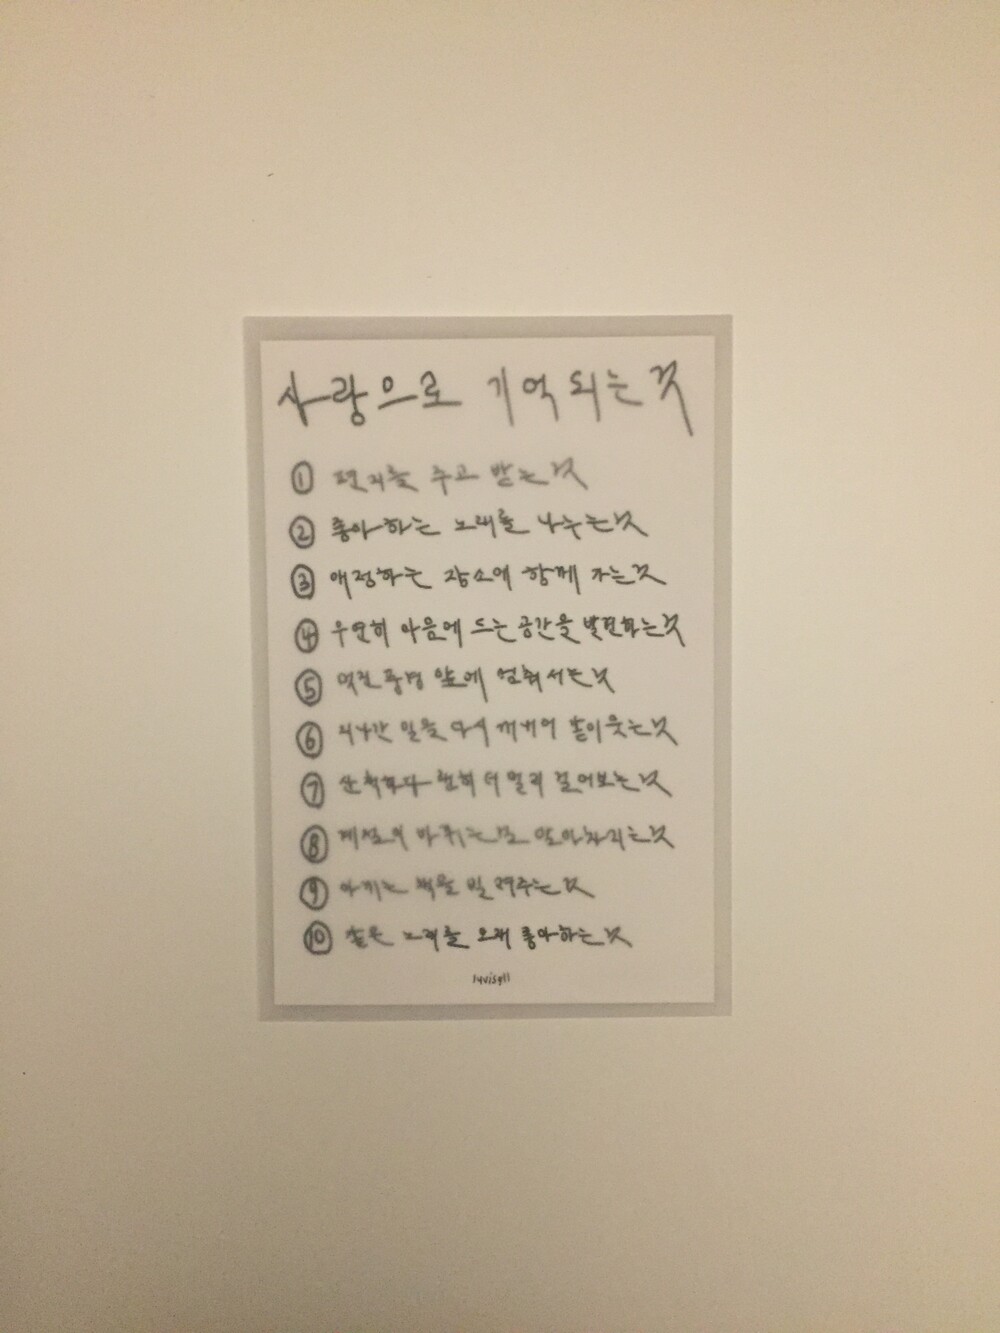 사랑으로 기억되는 것
① 편지를 주고 받는 것
② 좋아하는 노래를 나누는 것
③ 애정하는 장소에 함께 가는 것
④ 우연히 마음에 드는 공간을 발견하는 것
⑤ 멋진 풍경 앞에 멈춰 서는 것
⑥ 지나간 일을 다시 꺼내어 같이 웃는 것
⑦ 산책하다 괜히 더 멀리 걸어보는 것
⑧ 계절이 바뀌는 걸 알아차리는 것
⑨ 아끼는 책을 빌려주는 것
⑩ 같은 노래를 오래 좋아하는 것